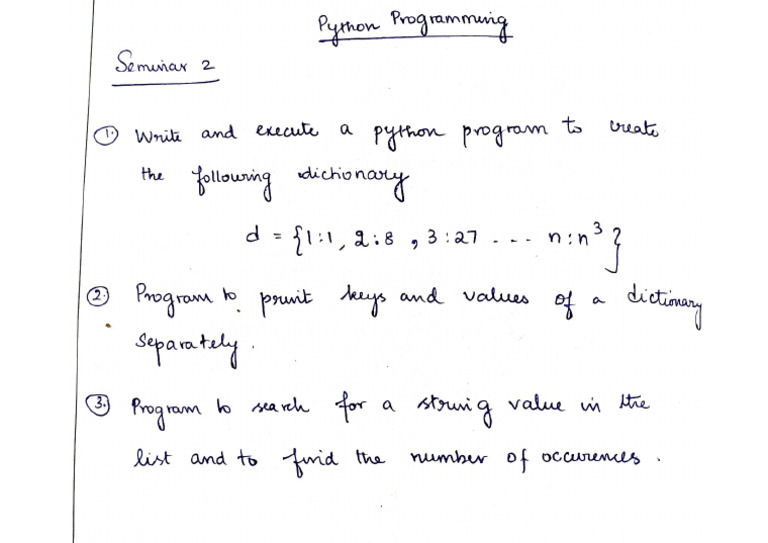 Python Programming
Seminar 2
1. Write and execute a python program to create
the following dictionary
d = {1:1, 2:8, 3:27 ... n:n³}
2. Program to print keys and values of a dictionary
Separately.
3. Program to search for a string value in the
list and to find the number of occurences.